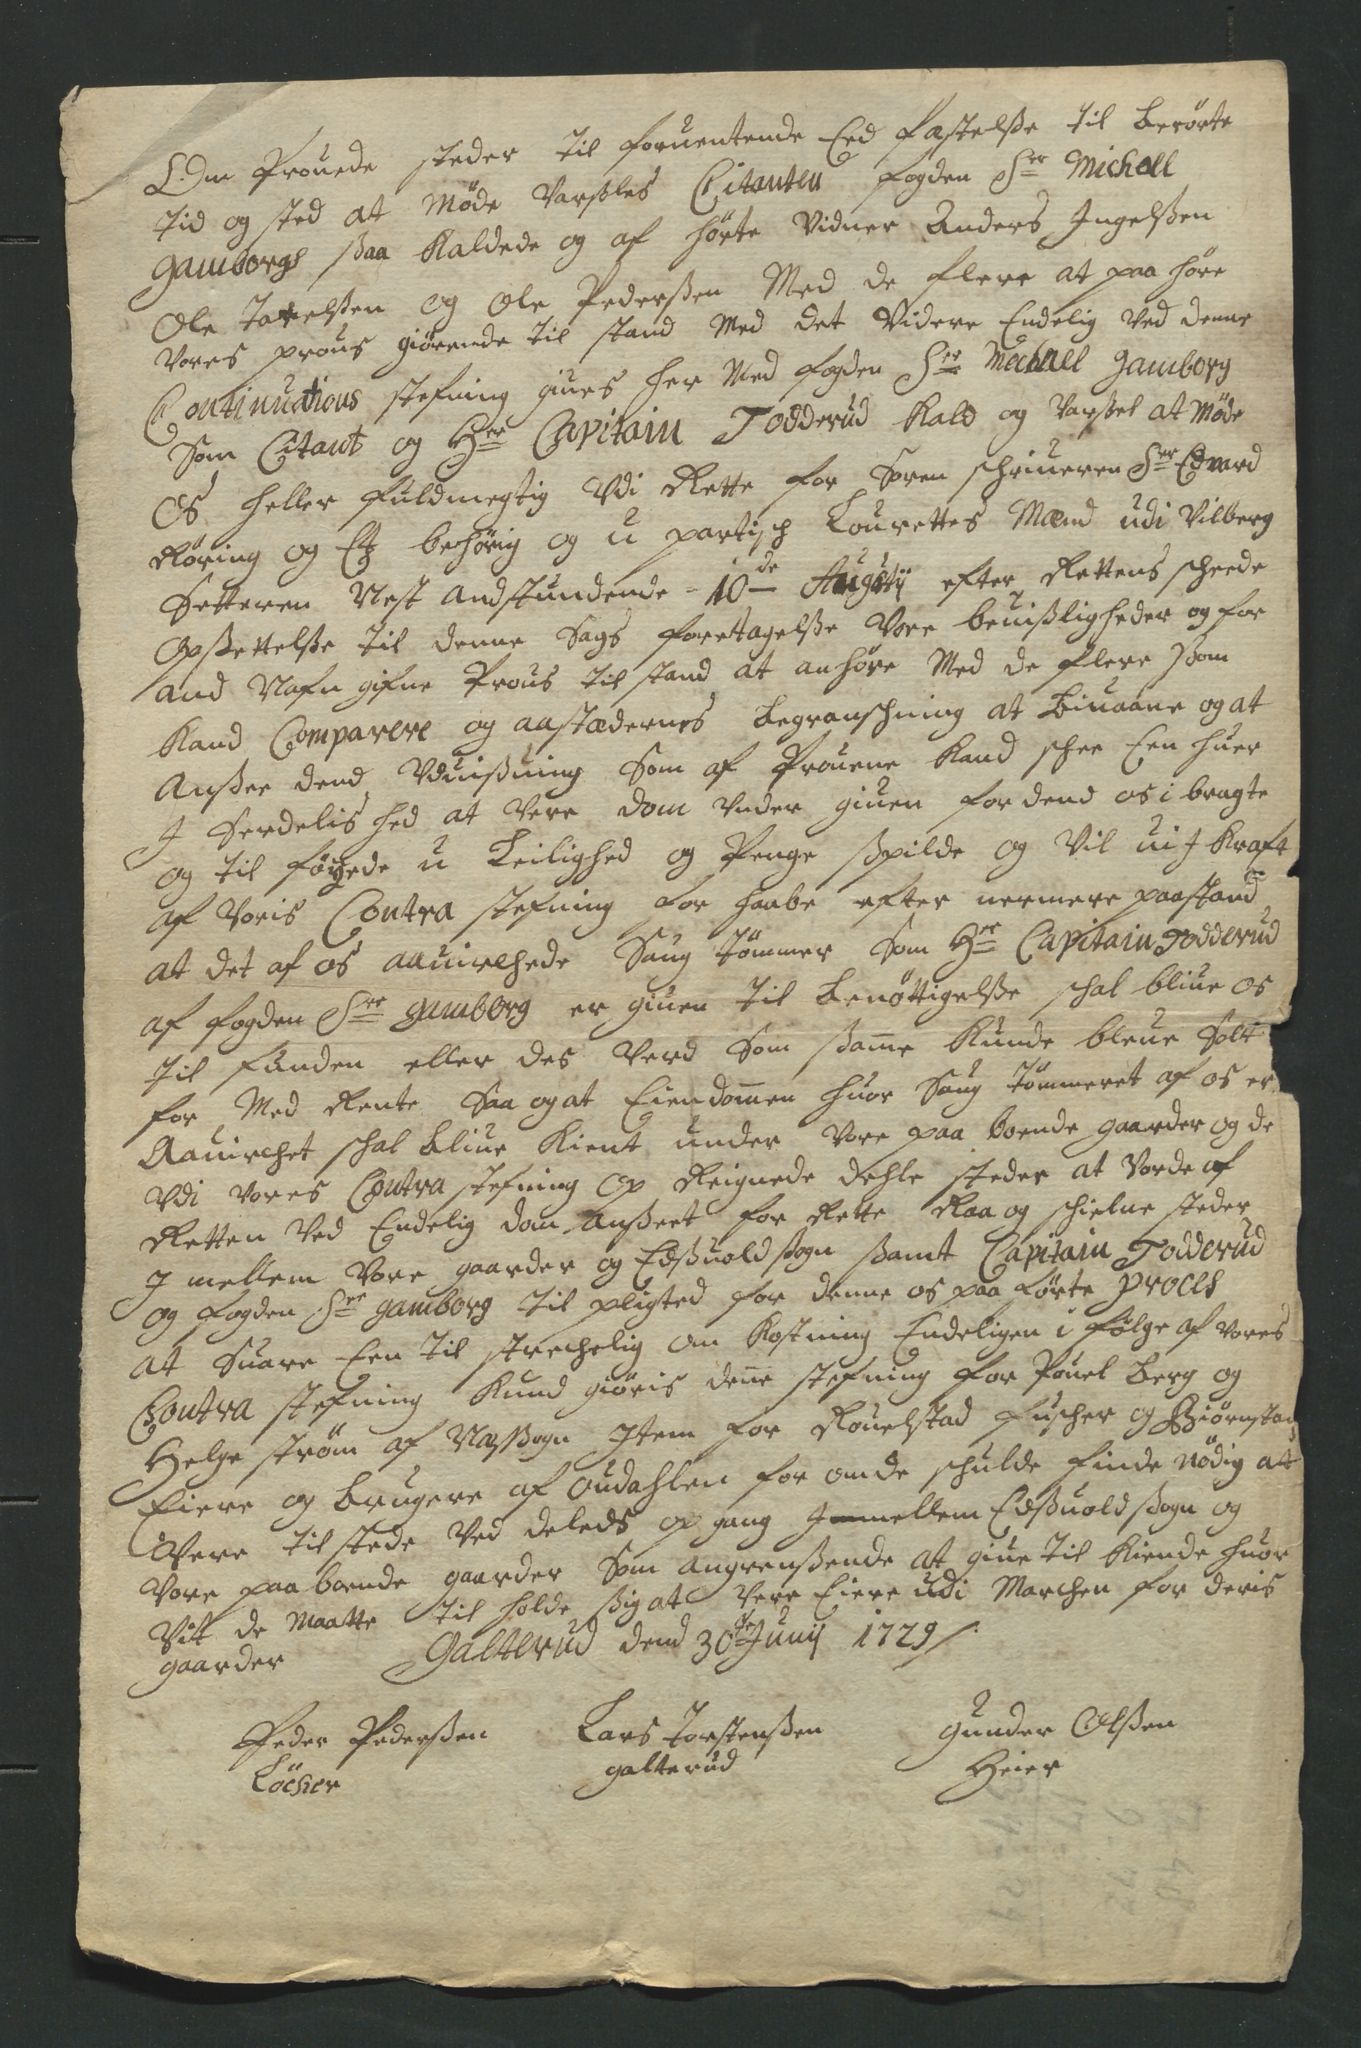 Om Prouede steder til foruentende Eed Fastelsse til Berørte
tid og sted at Møde Varssles Citanten fogden Sr Michell
Gamborgs ssaa kaldede og af hørte Vidner Anders Ingelssen
Ole Torelssen og Ole Pederssen Med de flere at paa høre
Vores prous giørende til stand Med det Videre Endelig ved denne
Continuations stefning giues her Med fogden Sr Michael Gamborg
som Citant og Hr Capitain Todderud kald og Varssel at Møde
os heller fuldmegtig Udi Rette for Soren schriueren Sr Edvard
Røring og behørig og u partisch Laurettes Mænd udi Vilberg
Setteren Nest andstundende 10de Augustij efter Rettens scheede
opssettelsse til denne Sags foretagelsse Vore beuissligheder og for
and Nafn gifne Prous til stand at anhøre Med de flere ssom
kand Comparere og aastædernes begranschning at biuaane og at
ansse dend Uduissning som af Prouene kand schee Een huer
I serdelished at Vere dom Under giuen for dend os i bragte
og til føyede u Leilighed og Penge sspilde og Vil ui I kraft
af Voris Contra stefning for haabe efter nermere paastand
at det af os aauirchede Saug tømmer som Hr Capitain Todderud
af fogden Sr Gamborg er giuen til benøttigelsse schal bliue os
til funden eller des Verd som ssame kunde bleue solt
for Med Rente saa og at Eiendomen huor Saug tømmeret af os er
Aauirchet schal bliue kient under Vore paa boende gaarder og de
Udi Vores Contra stefning op Reignede dehle steder at Vorde af
Retten Ved Endelig dom ansseet for Rette Raa og schielne steder
I mellem Vore gaarder og Edssuold ssogn ssamt Capitain Todderud
og fogden Sr Gamborg til pligted for denne os paa førte Proces
at suare Een til strechelig om kostning Endeligen i følge af Vores
Contra stefning kund giøris dene stefning for Pouel Berg og
Helge strøm af Næssogn Item for Rouelstad fuscher og Biørnstad
Eiere og brugere af Oudahlen for om de schulde finde nødig at
Vere til stede Ved deleds op gang I mellem Edssuold ssogn og
Vore paaboende gaarder som angrenssende at giue til kiende huor
Vit de Maatte til holde ssig at Vere Eiere udi Marchen for deris
gaarder Galterud dend 30te Junij 1729/.
Peder Pederssen Lars Torstenssen Gunder Olssen
Løcher Galterud Heier